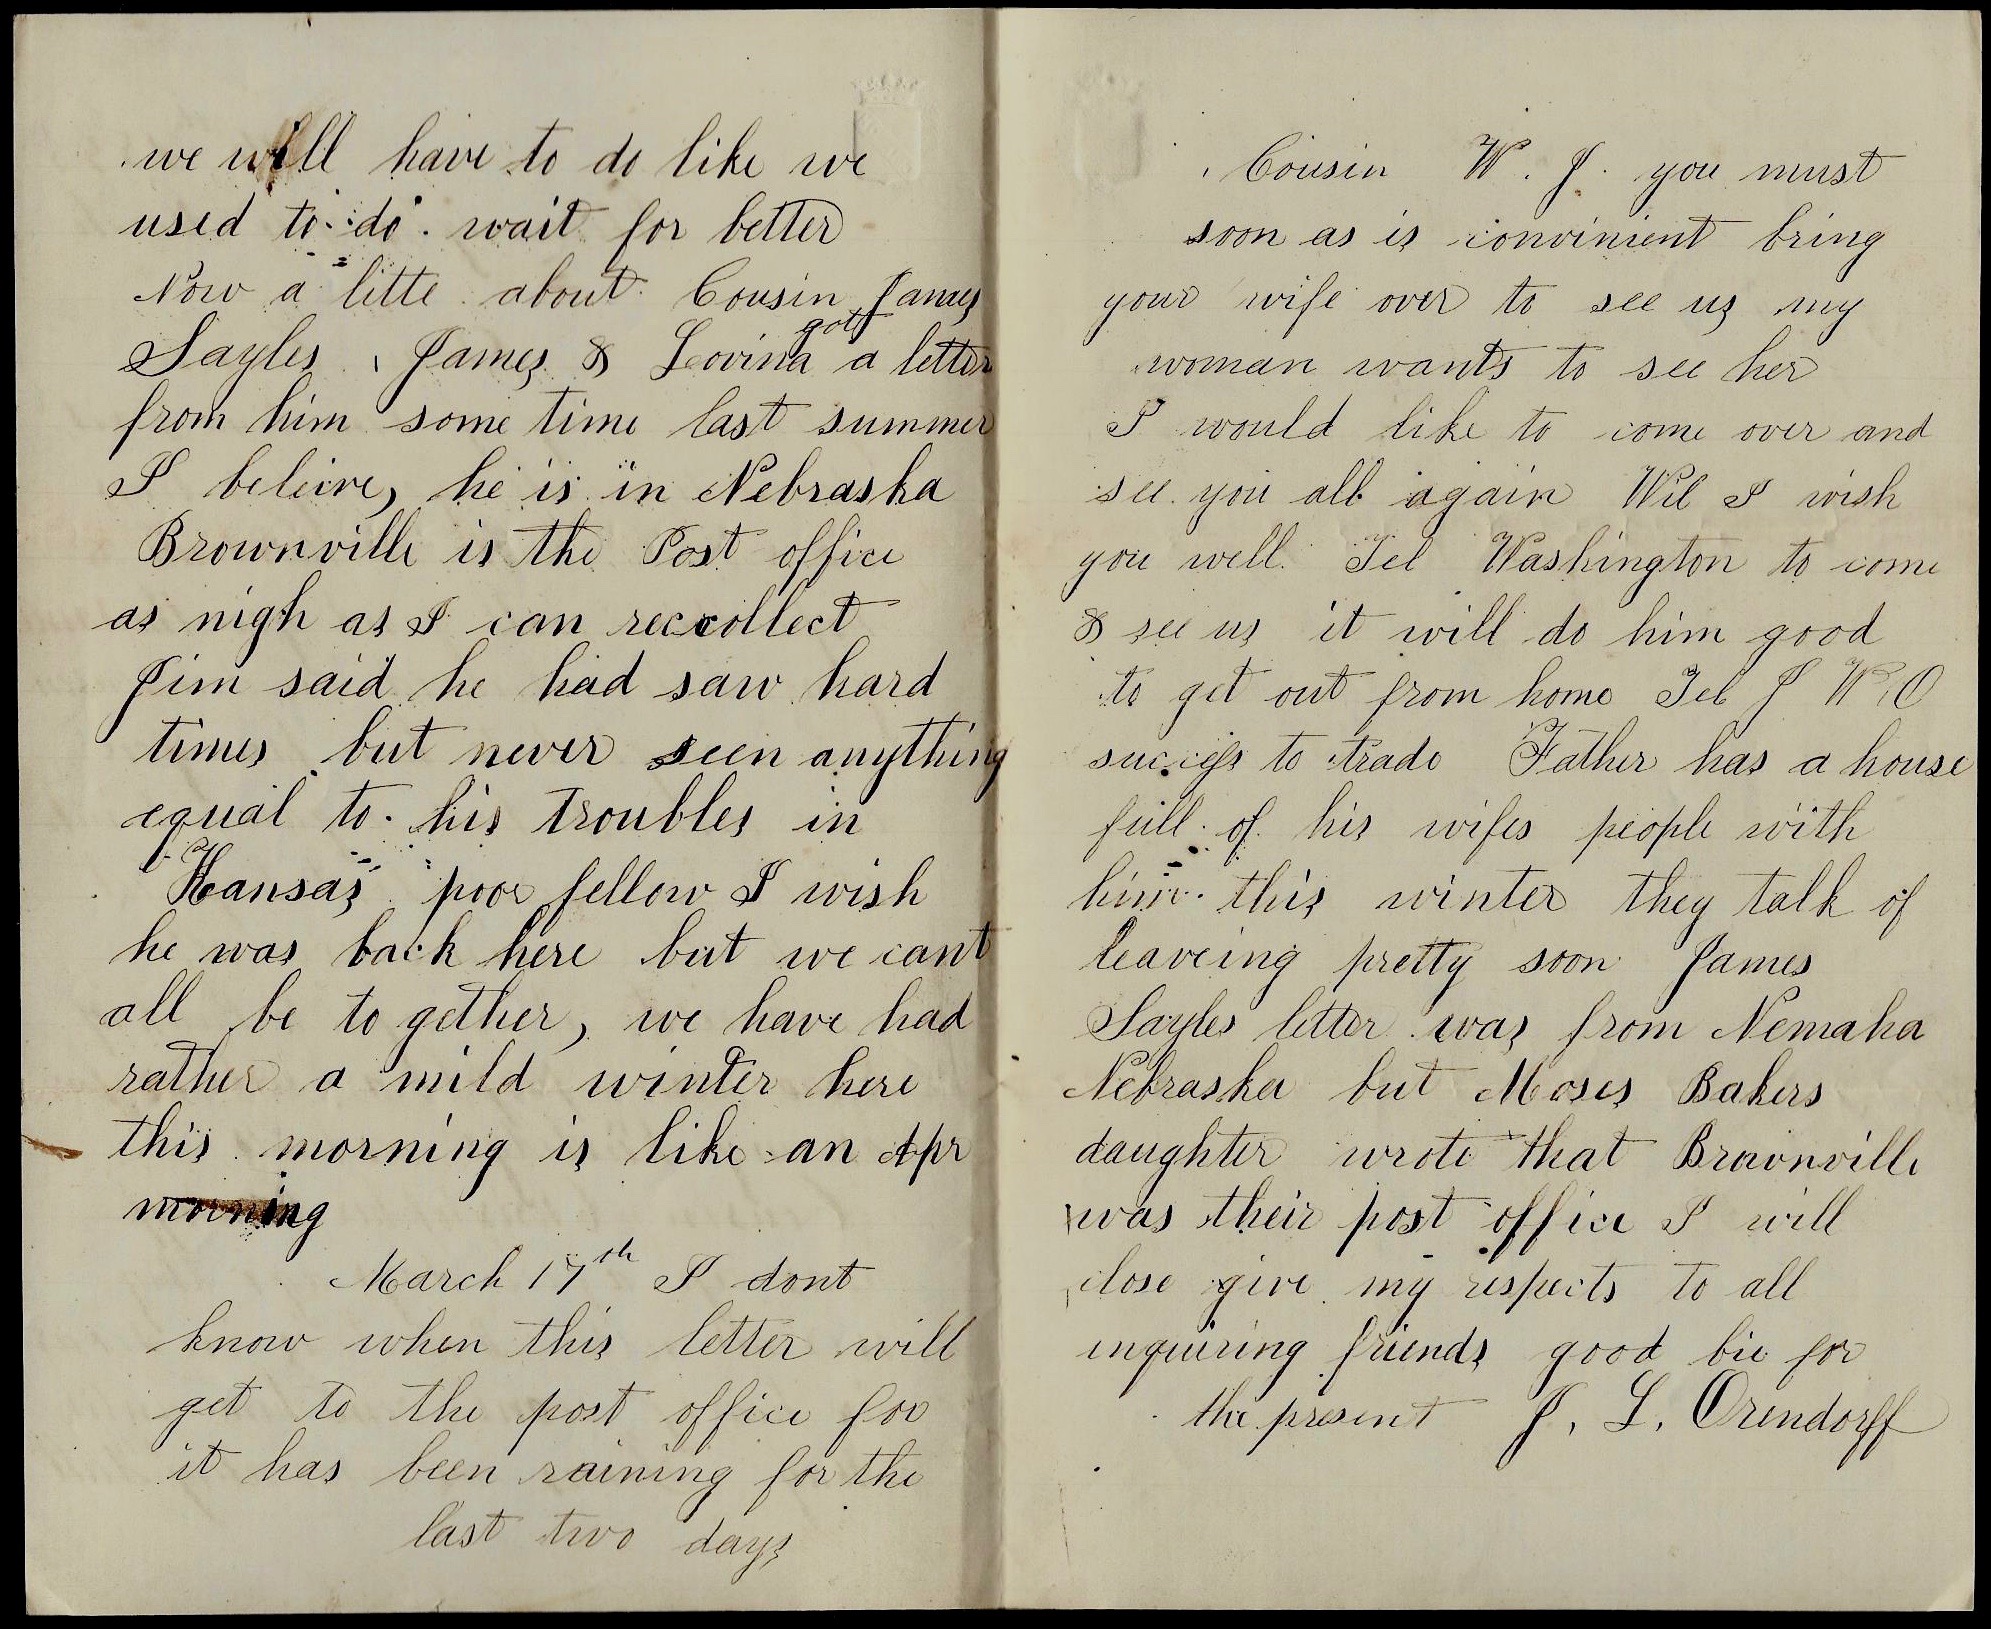 we will have to do like we
used to do. wait for better
Now a litte about Cousin James
Sayles, James & Lovina got a letter
from him some time last summer
I beleive, he is in Nebraska
Brownville is the Post office
as nigh as I can reccollect
Jim said he had saw hard
times but never seen anything
equal to his troubles in
Kansas poor fellow I wish
he was back here but we cant
all be to gether, we have had
rather a mild winter here
this morning is like an Apr
morning
March 17th I dont
know when this letter will
get to the post office for
it has been raining for the
last two days
Cousin W. J. you must
soon as is convinient bring
your wife over to see us my
woman wants to see her
I would like to come over and
see you all again Wil I wish
you well. Tel Washington to come
& see us it will do him good
to get out from home Tel J W. O
success to trade Father has a house
full of his wifes people with
him this winter they talk of
leaveing pretty soon James
Sayles letter was from Nemaha
Nebraska but Moses Bakers
daughter wrote that Brownville
was their post office I will
close give my respects to all
inquiring friends good bie for
the present J. L. Orendorff